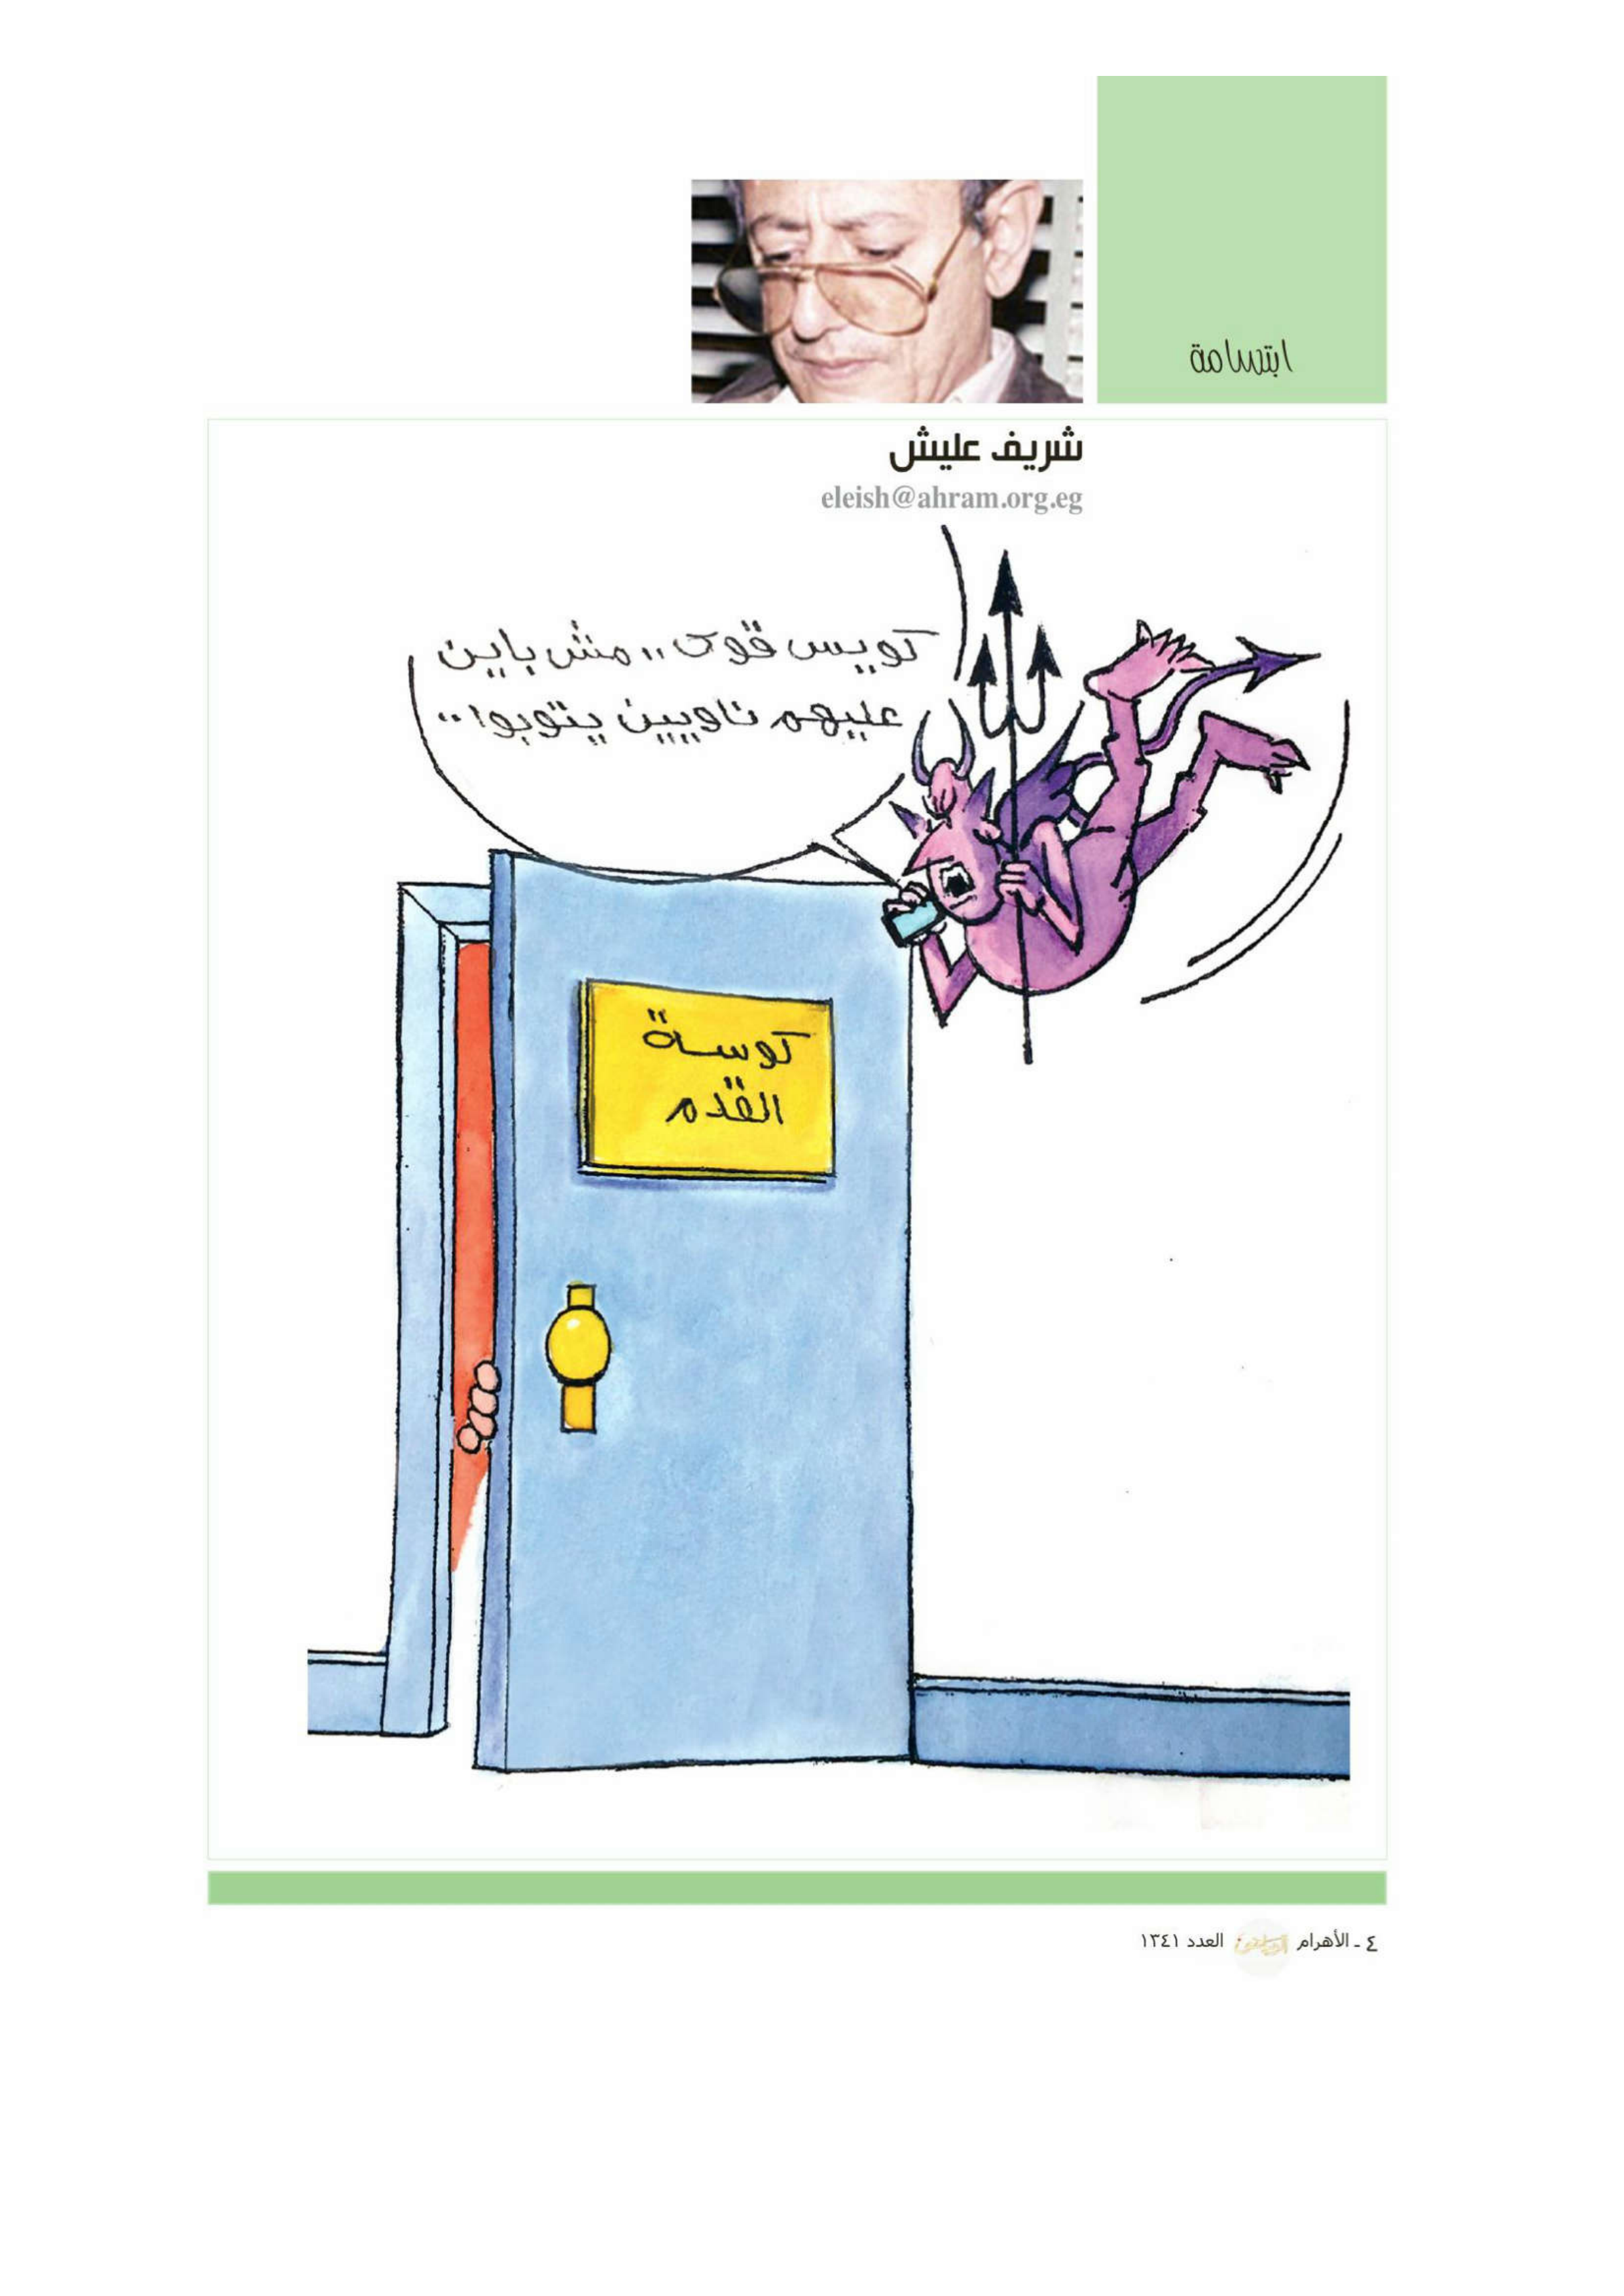 ابتسامة
شريف عليش
eleish@ahram.org.eg
كويس قوى،، مش باين
عليهم ناويين يتوبوا،،
كوسة
القدم
٤ ـ الأهرام الرياضى العدد ١٣٤١